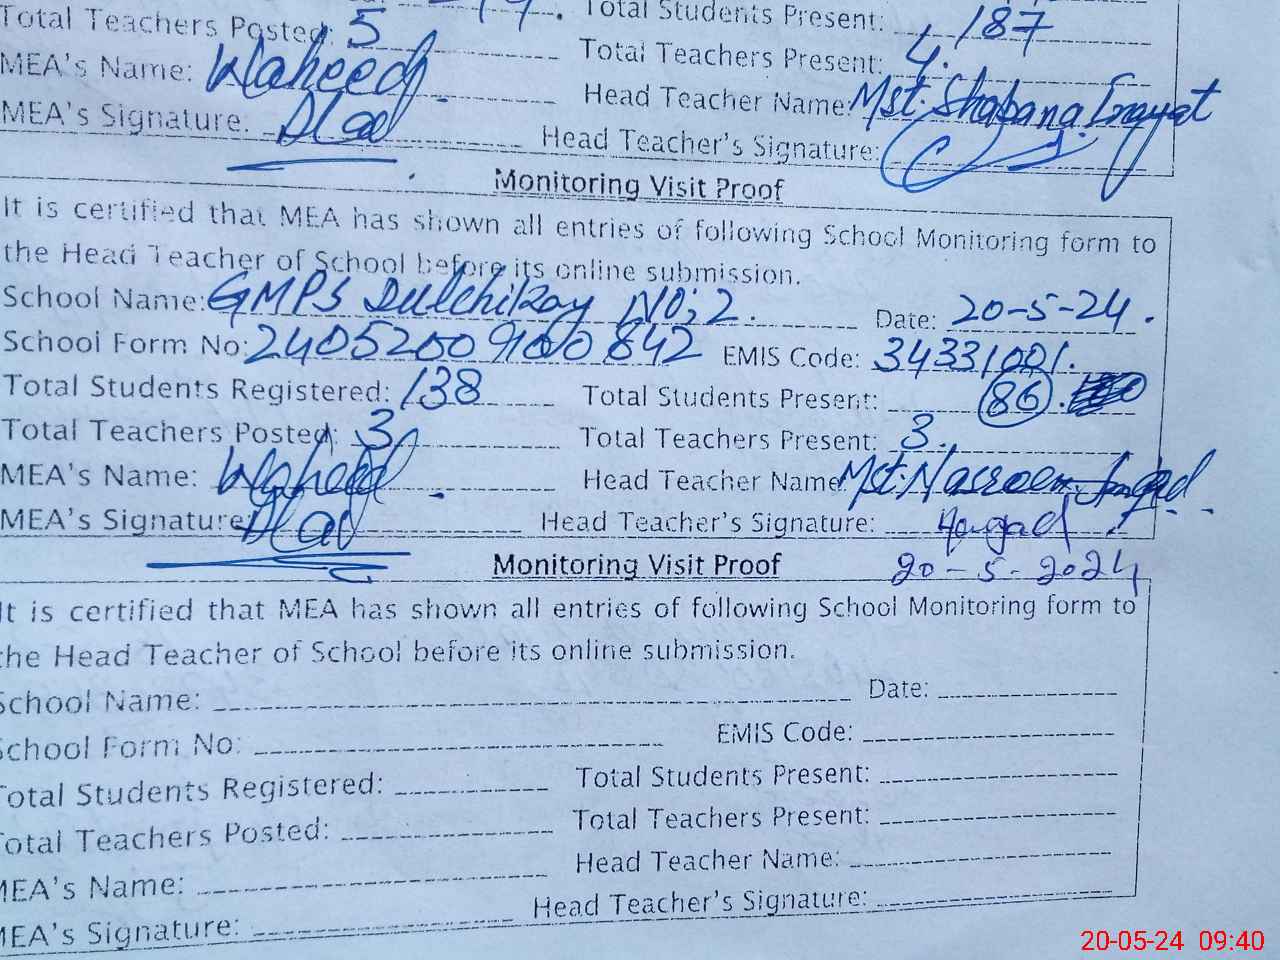 Total Teachers Posted: 5 Total Students Present: 187
MEA's Name: Waheed Total Teachers Present: 4.
MEA's Signature: Head Teacher Name: Mst. Shabana Inayat
Head Teacher's Signature:
Monitoring Visit Proof
It is certified that MEA has shown all entries of following School Monitoring form to
the Head Teacher of School before its online submission.
School Name: GMPS NO; 2. Date: 20-5-24.
School Form No: EMIS Code: 34331001.
Total Students Registered: 138 Total Students Present: 86
Total Teachers Posted: 3 Total Teachers Present: 3.
MEA's Name: Waheed Head Teacher Name: Mst. Nasreem
MEA's Signature: Head Teacher's Signature:
20-5-2024
Monitoring Visit Proof
It is certified that MEA has shown all entries of following School Monitoring form to
the Head Teacher of School before its online submission.
School Name: Date:
School Form No: EMIS Code:
Total Students Registered: Total Students Present:
Total Teachers Posted: Total Teachers Present:
MEA's Name: Head Teacher Name:
MEA's Signature: Head Teacher's Signature:
20-05-24 09:40